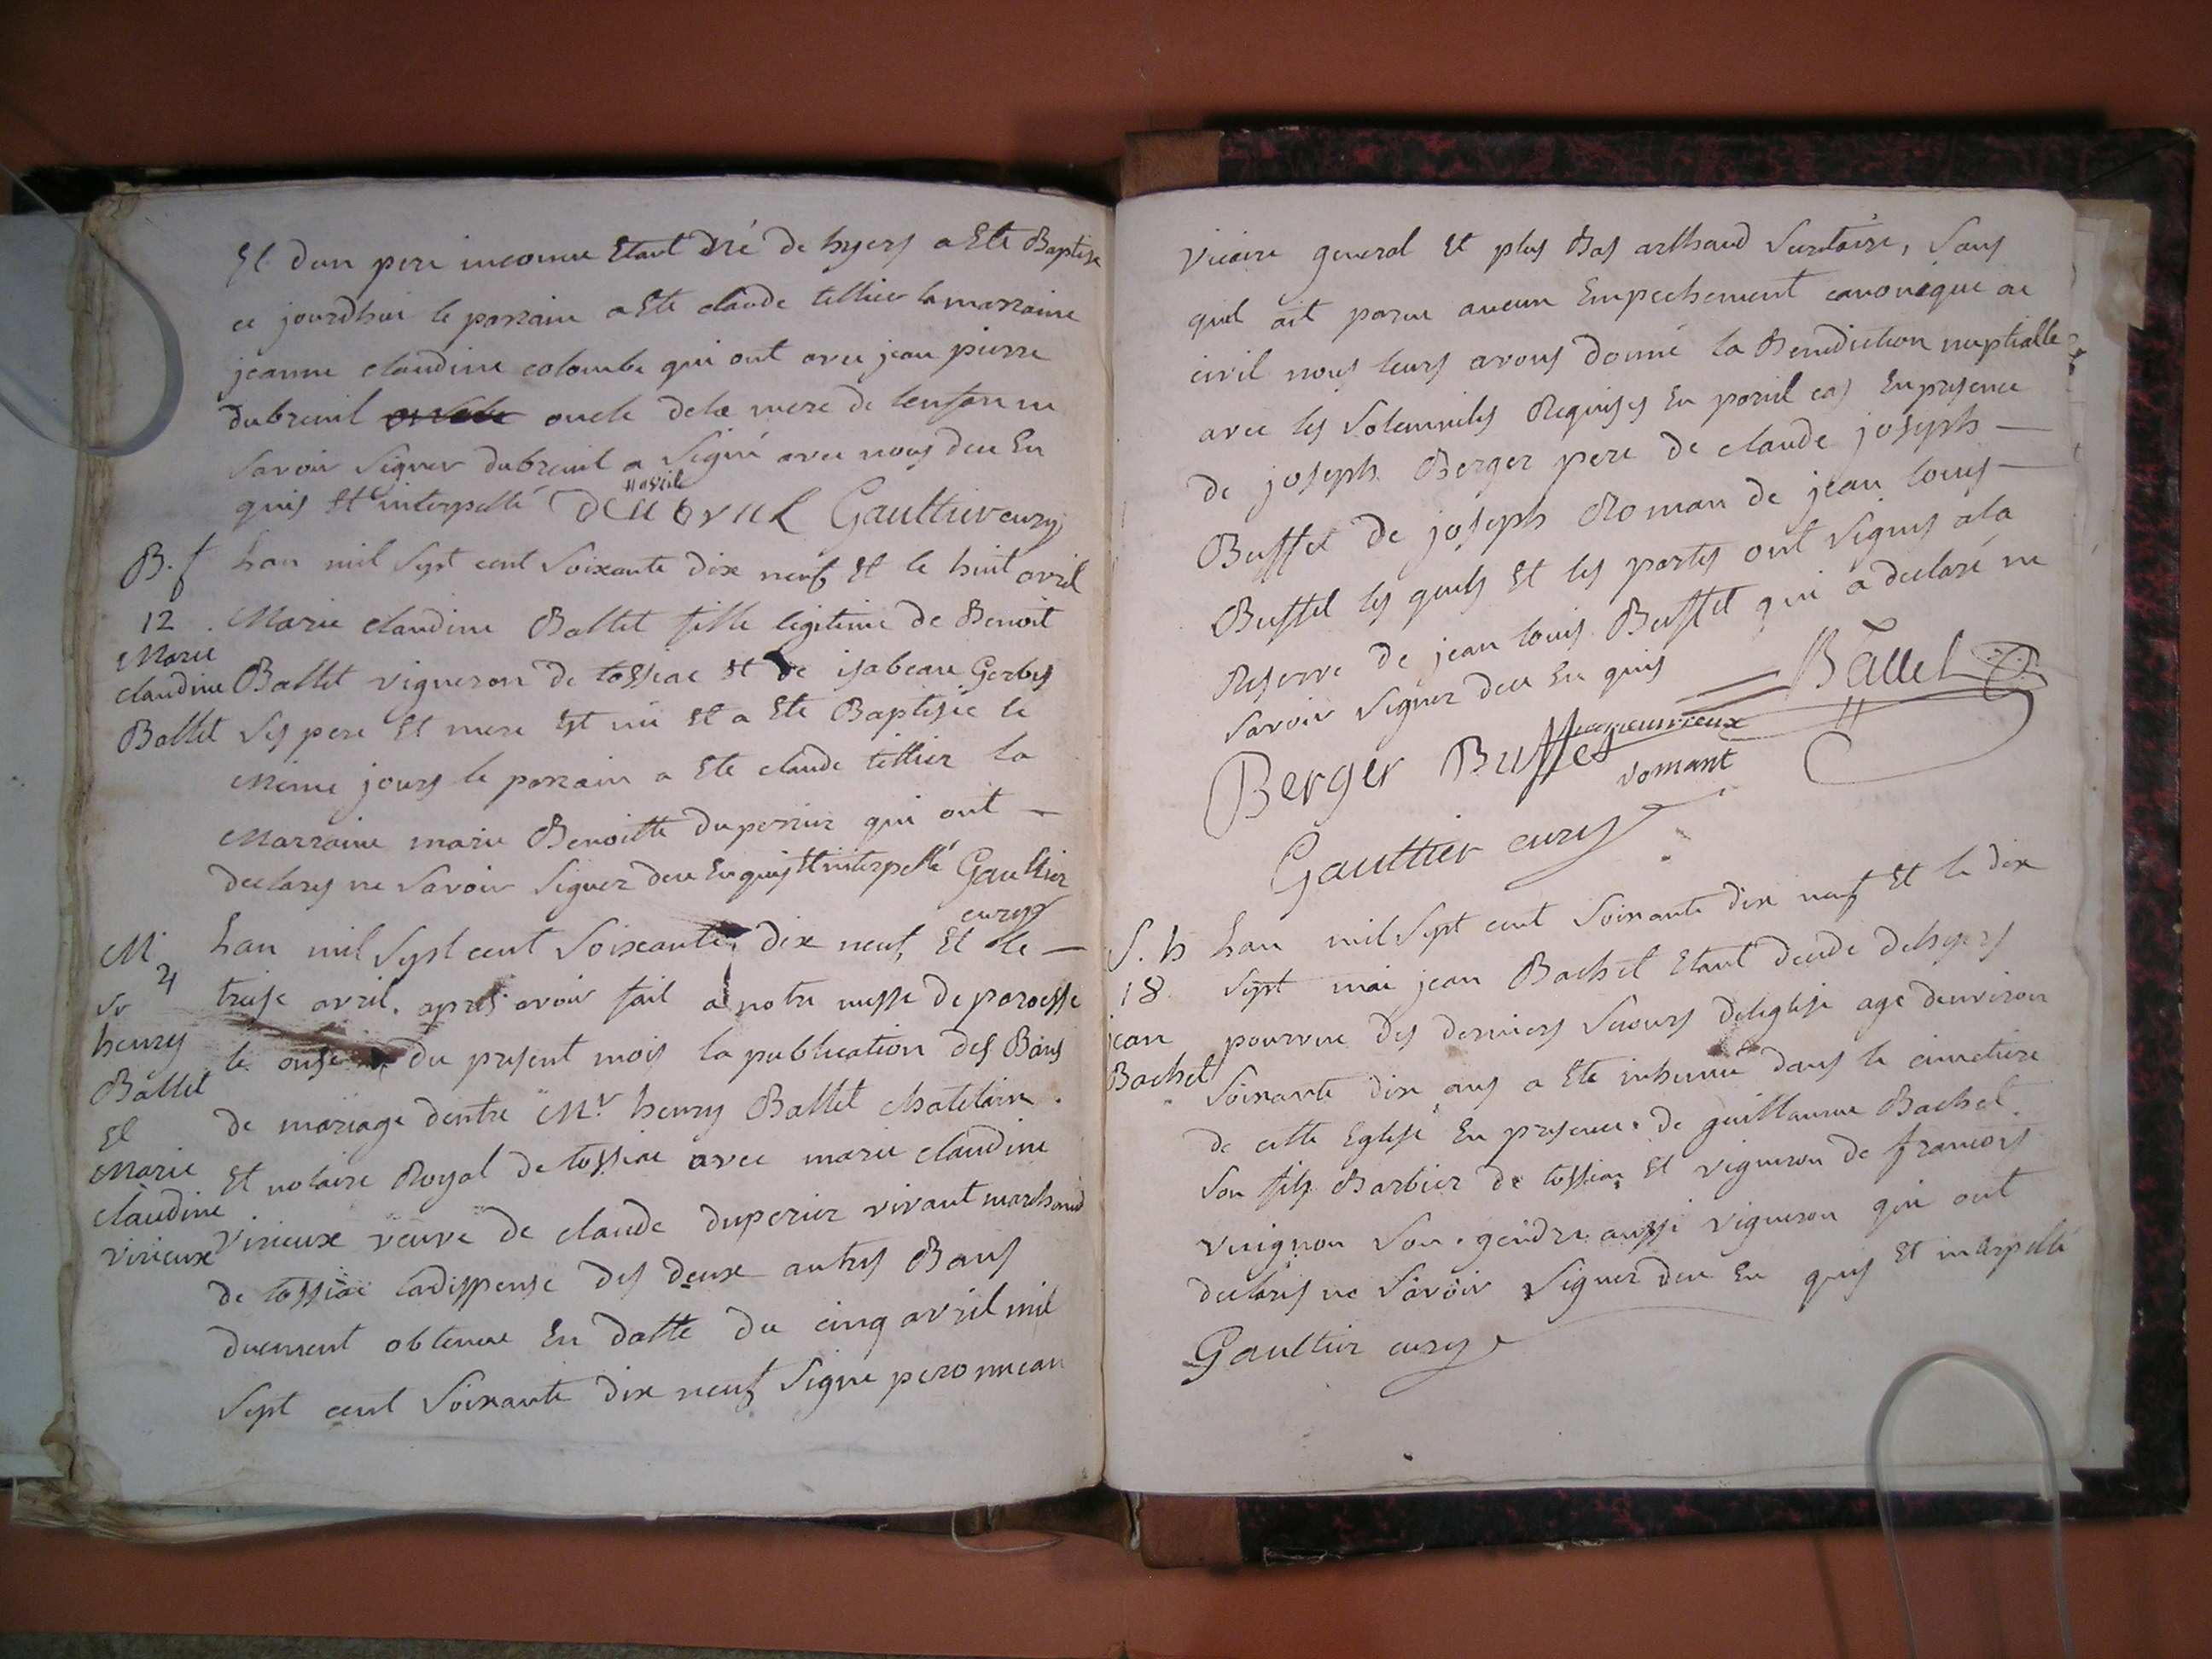 Et dun pere inconnu Etant né de hyers a Ete Baptise
ce jourdhui le parrain a Ete claude tillier la marraine
jeanne claudine colombe qui ont avec jean pierre
dubreuil oncle dela mere de lenfan ne
Savoir Signer dubreuil a Signé avec nous deu En
quis Et interpellé Gaulttier cury
B. f
12
Marie
claudine
Ballet
Lan mil Sept cent Soixante dix neuf Et le huit avril
Marie claudine Ballet fille legitime de Benoit
Ballet vigneron de tossiat Et de isabeau Gerbes
Ses pere Et mere Est née Et a Ete Baptisée le
Meme jours le parrain a Ete claude tillier la
Marraine marie Benoitte duperier qui ont
declarez ne Savoir Signer deu Enquis Et interpellé Gaulttier
cury
M.
4
Sr
henry
Ballet
Et
Marie
claudine
virieux
Lan mil Sept cent Soixante dix neuf, Et le
treise avril. apres avoir fait a notre messe de paroesse
le onse du present mois la publication des Bans
de mariage dentre Mr henry Ballet chatelain
Et notaire Royal de tossiat avec marie claudine
virieux veuve de claude duperier vivant marchand
de tossiat ladispense des deux autres Bans
duement obtenue En datte du cinq avril mil
Sept cent Soixante dix neuf Signe peronneau
vicaire general Et plus Bas arthaud Secretaire, Sans
quil ait paru aucun Empechement canonique ou
civil nous leurs avons donné la Benediction nuptialle
avec les Solemnites Requises En pareil cas En presence
de joseph Berger pere de claude joseph
Buffet de joseph Roman de jean louis
Buffet les quels Et les parties ont Signes ala
Reserve de jean louis Buffet qui a declaré ne
Savoir Signer deu En quis
Ballet
Berger Buffet
romant
Gaulttier cury
S. h
18
jean
Bachet
Lan mil Sept cent Soixante dix neuf Et le dix
Sept mai jean Bachet Etant decede dehyers
pourvue des derniers Secours deleglise age denviron
Soixante dix ans a Ete inhumé dans le cimetiere
de cette Eglise En presence de guillaume Bachet
Son fils Barbier de tossiat Et vigneron de francois
vuignon Son gendre aussi vigneron qui ont
declares ne Savoir Signer deu En quis Et interpellé
Gaulttier cury